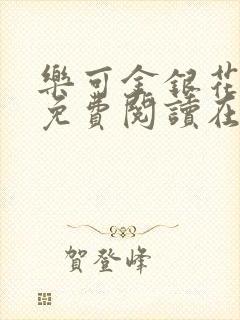 樂可金銀花
免費閱讀在
賀登峰